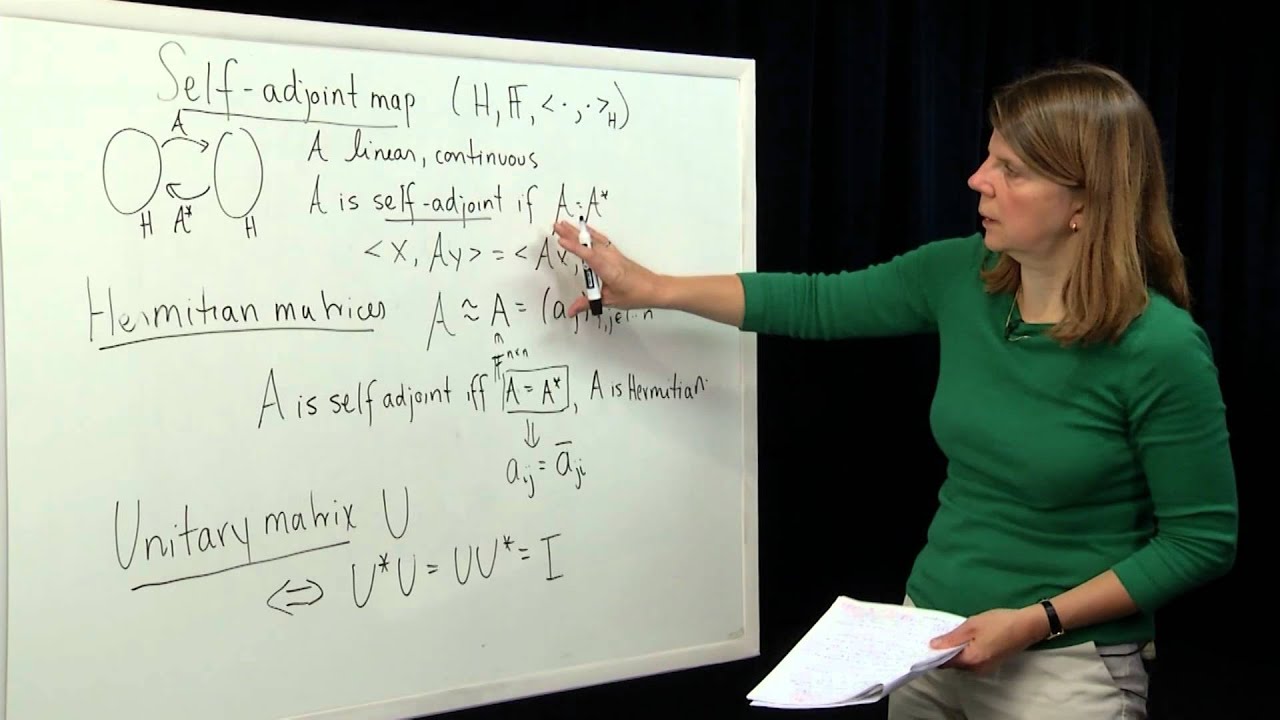 Self-adjoint map (H, 𝔽, <·,·>_H)
A
A linear, continuous
A is self-adjoint if A = A*
H A* H
<x, Ay> = <Ax,
Hermitian matrices A ≈ A = (a
𝔽^{n×n}
A is self adjoint iff A = A*, A is Hermitian.
⇓
a_{ij} = a̅_{ji}
Unitary matrix U
⇔ U*U = UU* = I